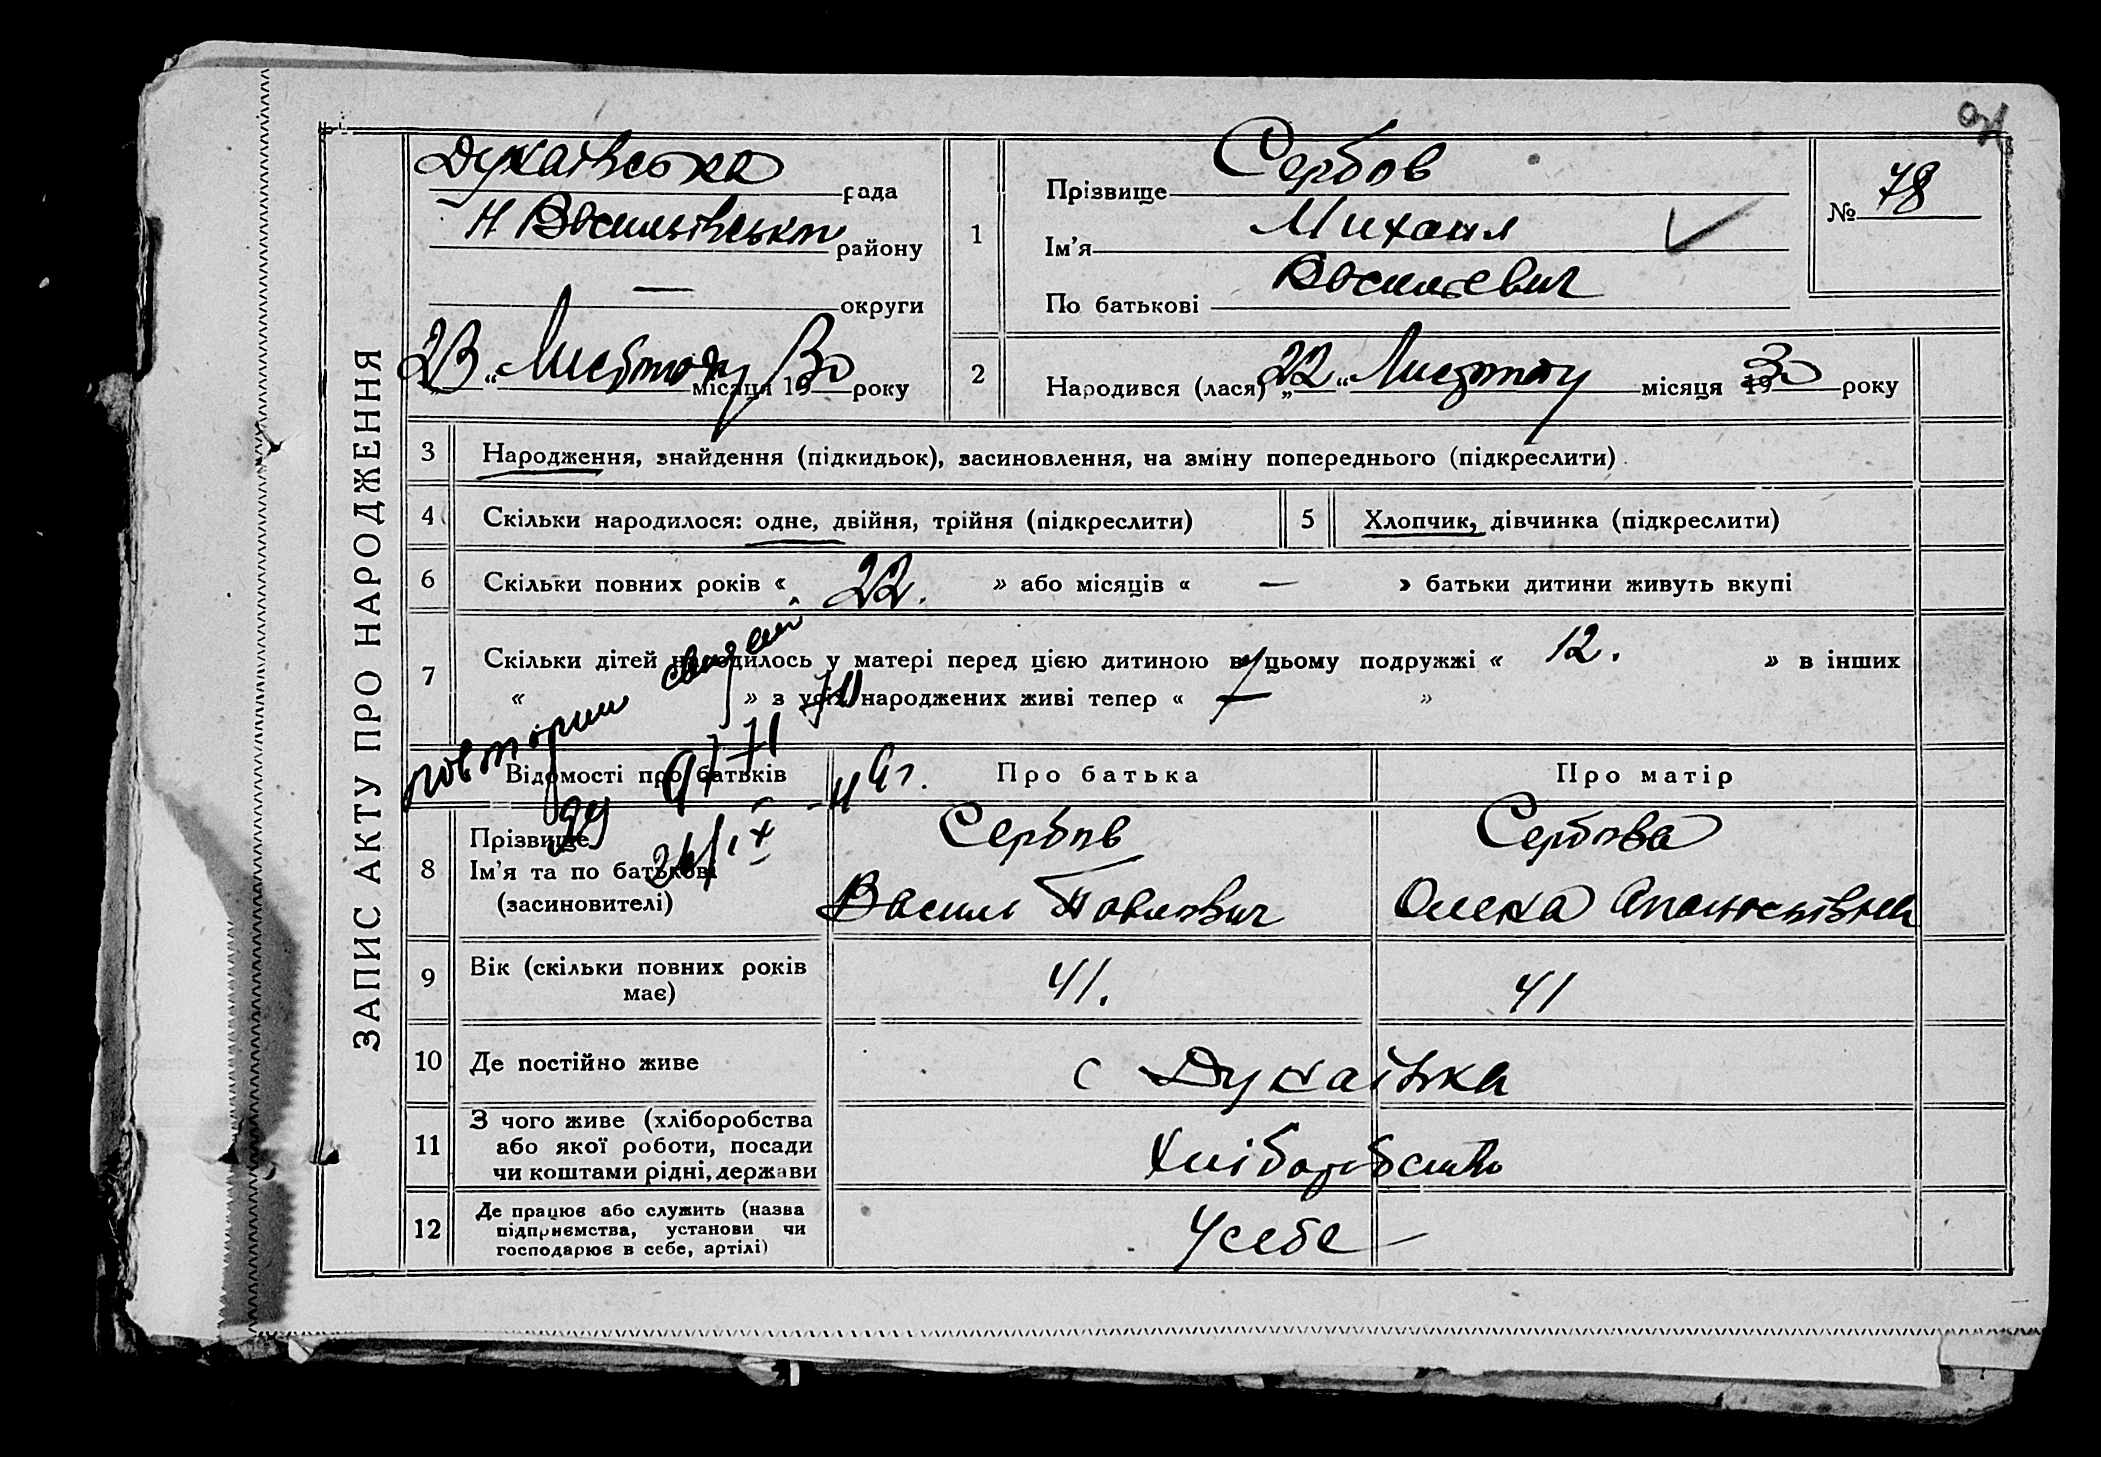 ЗАПИС АКТУ ПРО НАРОДЖЕННЯ
Дунаївська рада
Н Васильівськи району
— округи
23 „ Листопаду місяця 19 30 року
1
Прізвище Сербов
Ім’я Михаил
По батькові Василєвич
№ 78
2 Народився (лася) „ 22 “ Листопаду місяця 19 30 року
3 Народження, знайдення (підкидьок), засиновлення, на зміну попереднього (підкреслити)
4 Скільки народилося: одне, двійня, трійня (підкреслити)
5 Хлопчик, дівчинка (підкреслити)
6 Скільки повних років « 22. » або місяців « — » батьки дитини живуть вкупі
7 Скільки дітей народилось у матері перед цією дитиною в цьому подружжі « 12. » в інших
« » з усіх народжених живі тепер « 7 »
Відомості про батьків Про батька Про матір
8 Прізвище
Ім’я та по батькові
(засиновителі)
Сербов
Василь Павлович
Сербова
Олена Опанасьівна
9 Вік (скільки повних років
має)
41. 41
10 Де постійно живе с Дунаівка
11 З чого живе (хліборобства
або якої роботи, посади
чи коштами рідні, держави
Хліборобство
12 Де працює або служить (назва
підприємства, установи чи
господарює в себе, артілі)
У себе